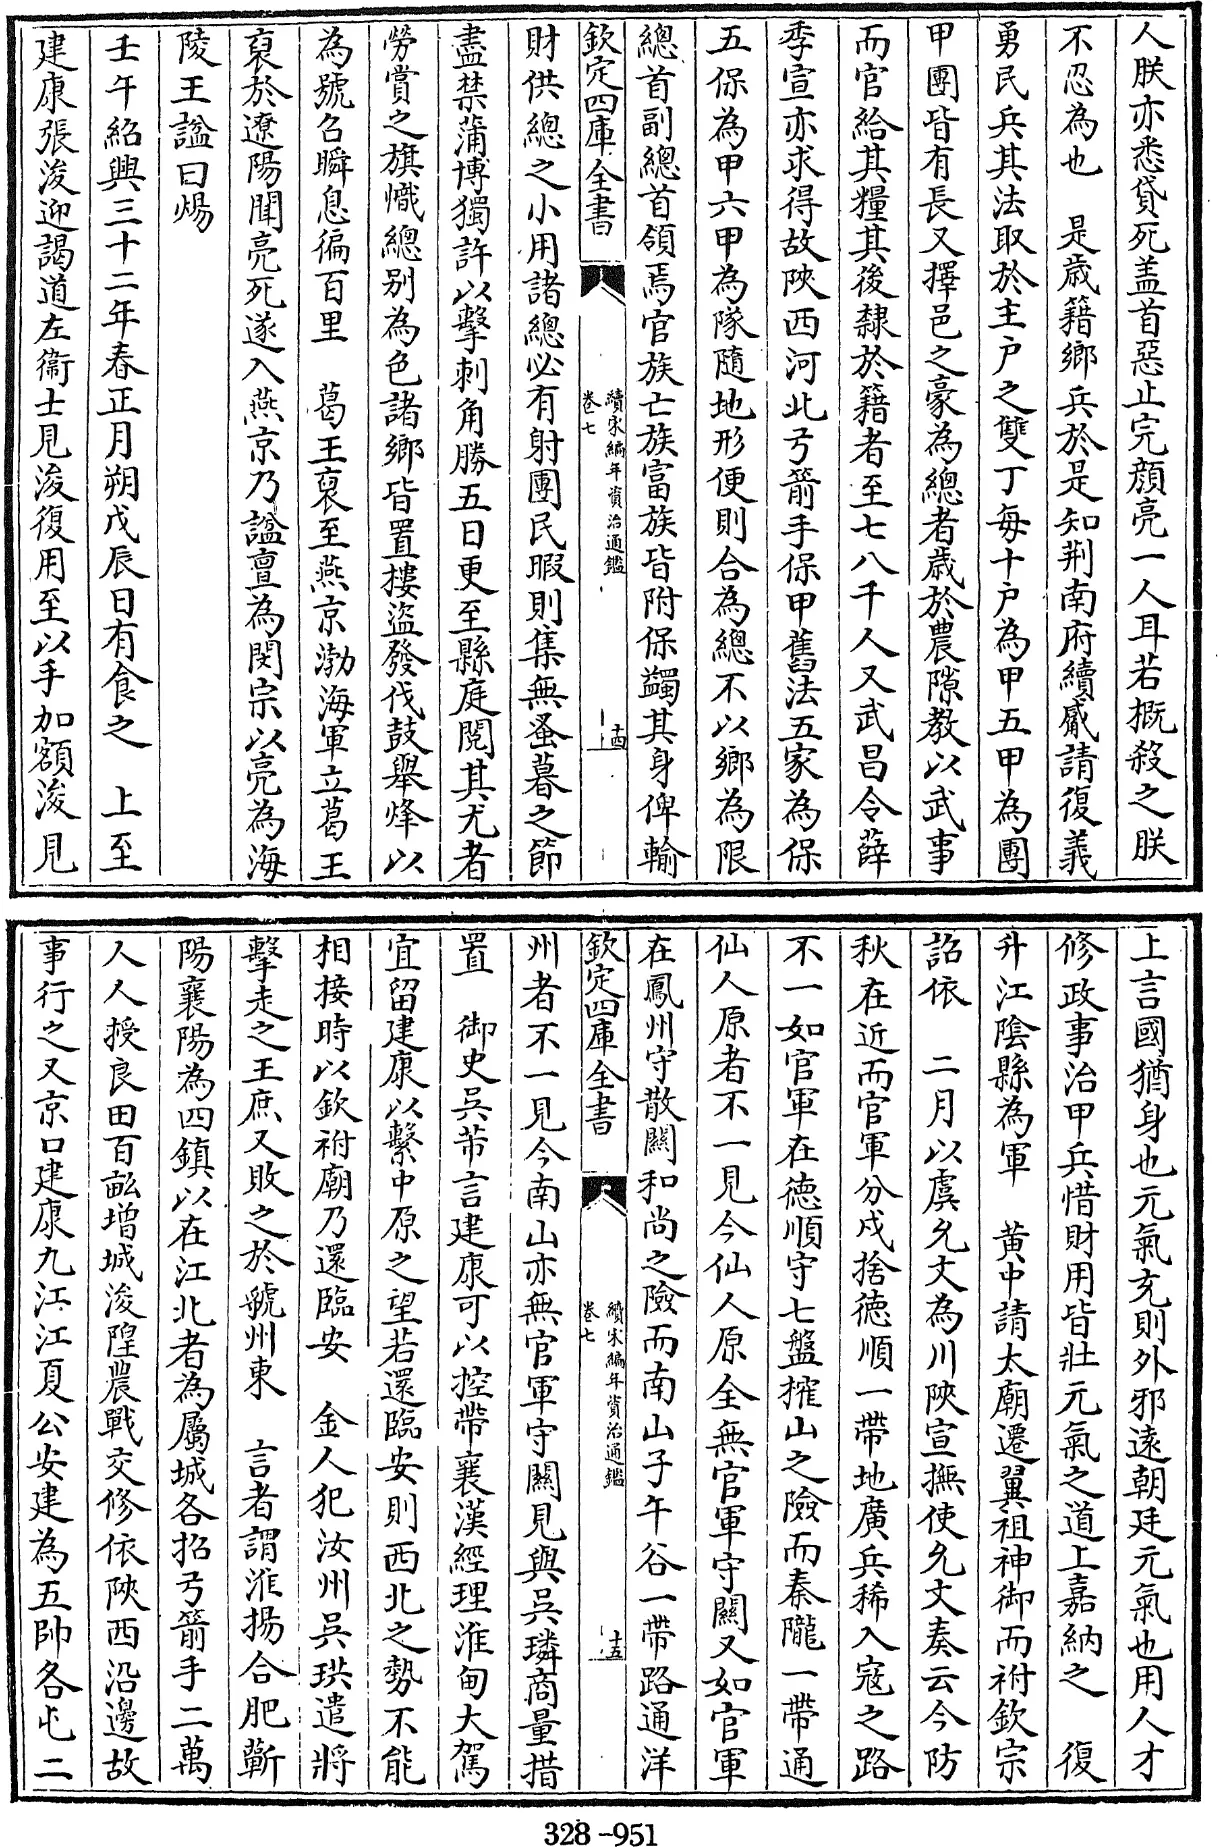 人朕亦悉貸死盖首惡止完顔亮一人耳若概殺之朕
不忍為也　是歳籍鄉兵於是知荆南府續觱請復義
勇民兵其法取於主户之雙丁每十户為甲五甲為團
甲團皆有長又擇邑之豪為總者歳於農隙教以武事
而官給其糧其後隸於籍者至七八千人又武昌令薛
季宣亦求得故陜西河北弓箭手保甲舊法五家為保
五保為甲六甲為隊隨地形便則合為總不以鄉為限
總首副總首領焉官族士族富族皆附保蠲其身俾輸
欽定四庫全書
續宋編年資治通鑑
卷七
十四
財供總之小用諸總必有射團民暇則集無蚤暮之節
盡禁蒲博獨許以擊刺角勝五日更至縣庭閲其尤者
勞賞之旗幟總别為色諸鄉皆置摟盜發伐鼓舉烽以
為號召瞬息徧百里　葛王裒至燕京渤海軍立葛王
裒於遼陽聞亮死遂入燕京乃諡亶為閔宗以亮為海
陵王諡曰煬
壬午紹興三十二年春正月朔戊辰日有食之　上至
建康張浚迎謁道左衞士見浚復用至以手加額浚見
上言國猶身也元氣充則外邪遠朝廷元氣也用人才
修政事治甲兵惜財用皆壯元氣之道上嘉納之　復
升江陰縣為軍　黄中請太廟遷翼祖神御而祔欽宗
詔依　二月以虞允文為川陜宣撫使允文奏云今防
秋在近而官軍分戍捨德順一帶地廣兵稀入寇之路
不一如官軍在德順守七盤摧山之險而秦隴一帶通
仙人原者不一見今仙人原全無官軍守關又如官軍
在鳳州守散關和尚之險而南山子午谷一帶路通洋
欽定四庫全書
續宋編年資治通鑑
卷七
十五
州者不一見今南山亦無官軍守關見與吳璘商量措
置　御史吳芾言建康可以控帶襄漢經理淮甸大駕
宜留建康以繫中原之望若還臨安則西北之勢不能
相接時以欽祔廟乃還臨安　金人犯汝州吳珙遣將
擊走之王庶又敗之於虢州東　言者謂淮揚合肥蘄
陽襄陽為四鎮以在江北者為屬城各招弓箭手二萬
人人授良田百畝增城浚隍農戰交修依陜西沿邊故
事行之又京口建康九江江夏公安建為五帥各屯二
328-951